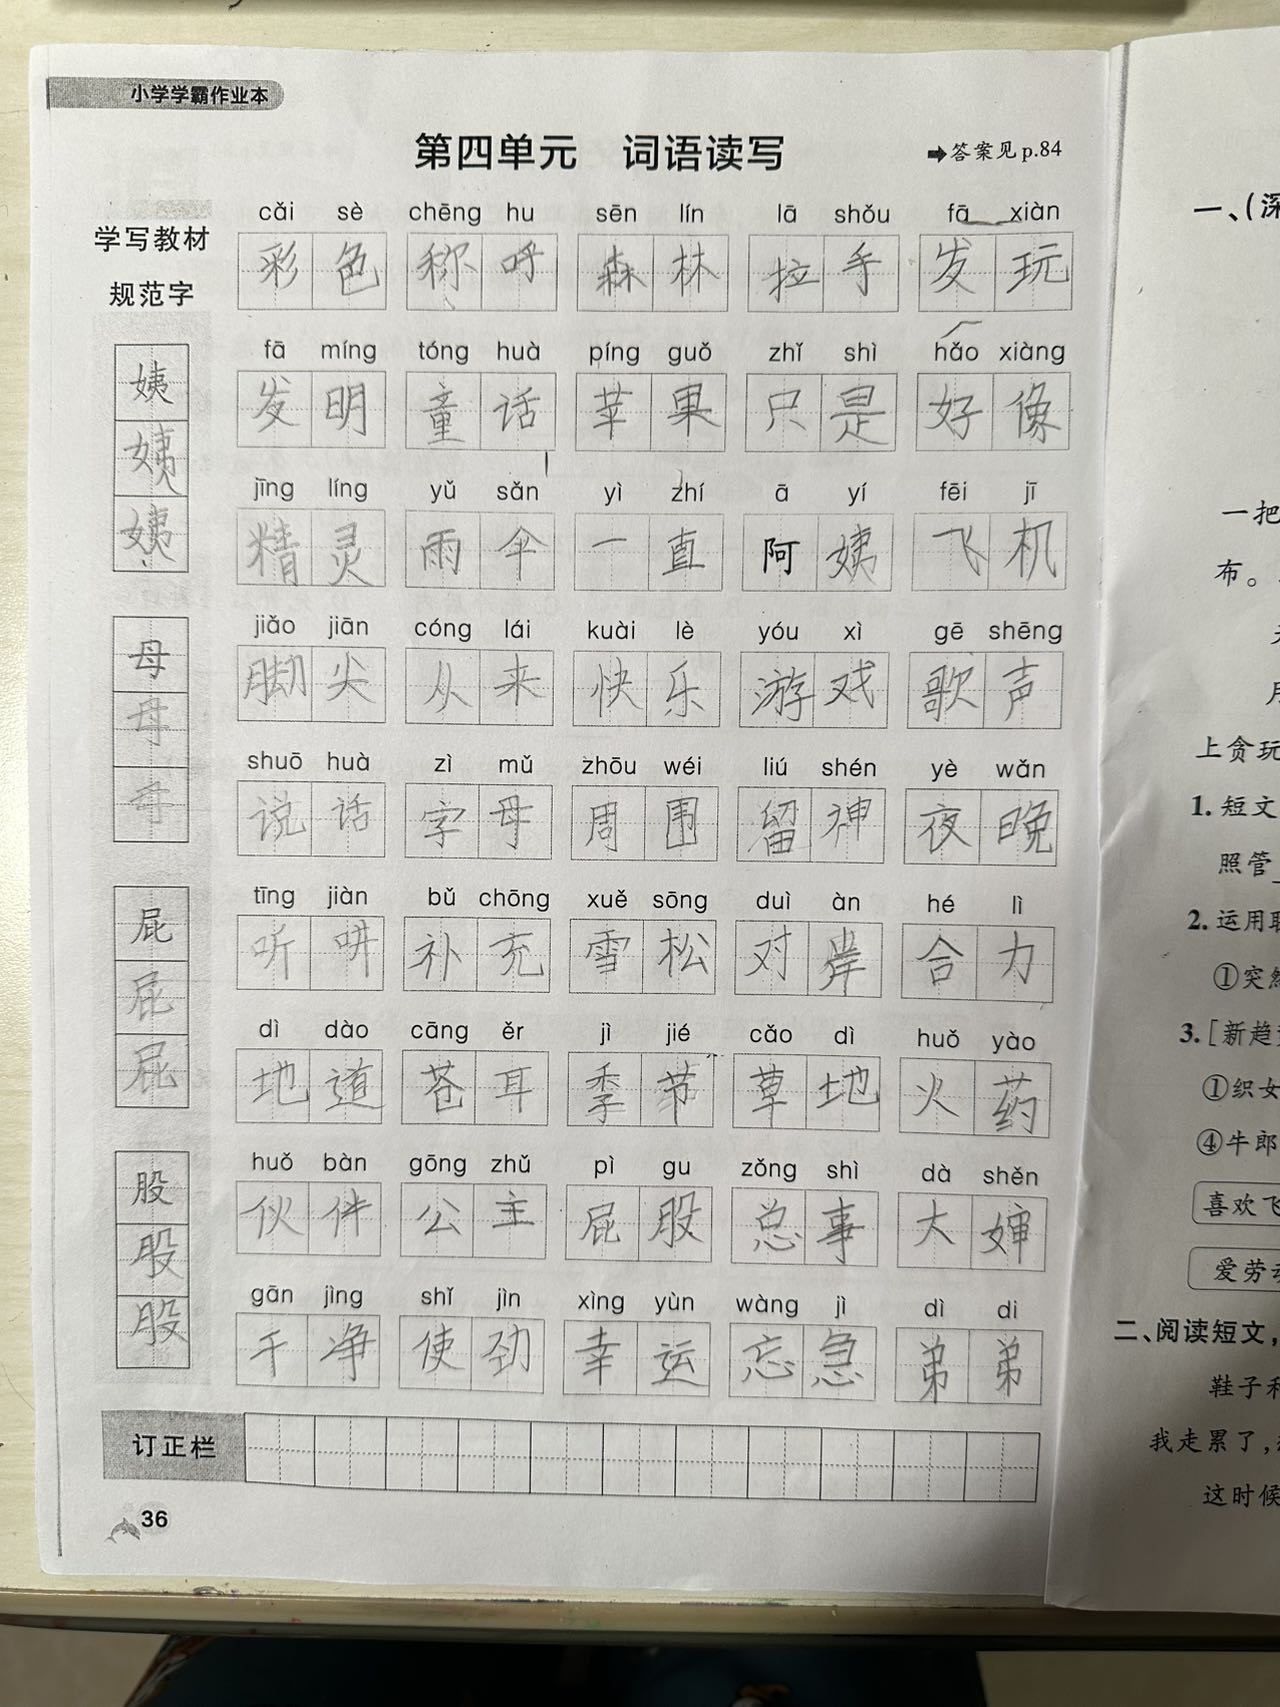 小学学霸作业本
第四单元 词语读写
➡答案见p.84
学写教材
规范字
姨
姨
姨
母
母
母
屁
屁
屁
股
股
股
cǎi sè chēng hu sēn lín lā shǒu fā xiàn
彩色 称呼 森林 拉手 发玩
fā míng tóng huà píng guǒ zhǐ shì hǎo xiàng
发明 童话 苹果 只是 好像
jīng líng yǔ sǎn yì zhí ā yí fēi jī
精灵 雨伞 一直 阿姨 飞机
jiǎo jiān cóng lái kuài lè yóu xì gē shēng
脚尖 从来 快乐 游戏 歌声
shuō huà zì mǔ zhōu wéi liú shén yè wǎn
说话 字母 周围 留神 夜晚
tīng jiàn bǔ chōng xuě sōng duì àn hé lì
听 补充 雪松 对 合力
dì dào cāng ěr jì jié cǎo dì huǒ yào
地道 苍耳 季节 草地 火药
huǒ bàn gōng zhǔ pì gu zǒng shì dà shěn
伙伴 公主 屁股 总事 大婶
gān jìng shǐ jìn xìng yùn wàng jì dì di
干净 使劲 幸运 忘急 弟弟
订正栏
36
一、(深
一把
布。
上贪玩
1. 短文
照管
2. 运用联
①突然
3. [新趋势
①织女
④牛郎
喜欢飞
爱劳动
二、阅读短文，
鞋子和
我走累了，
这时候